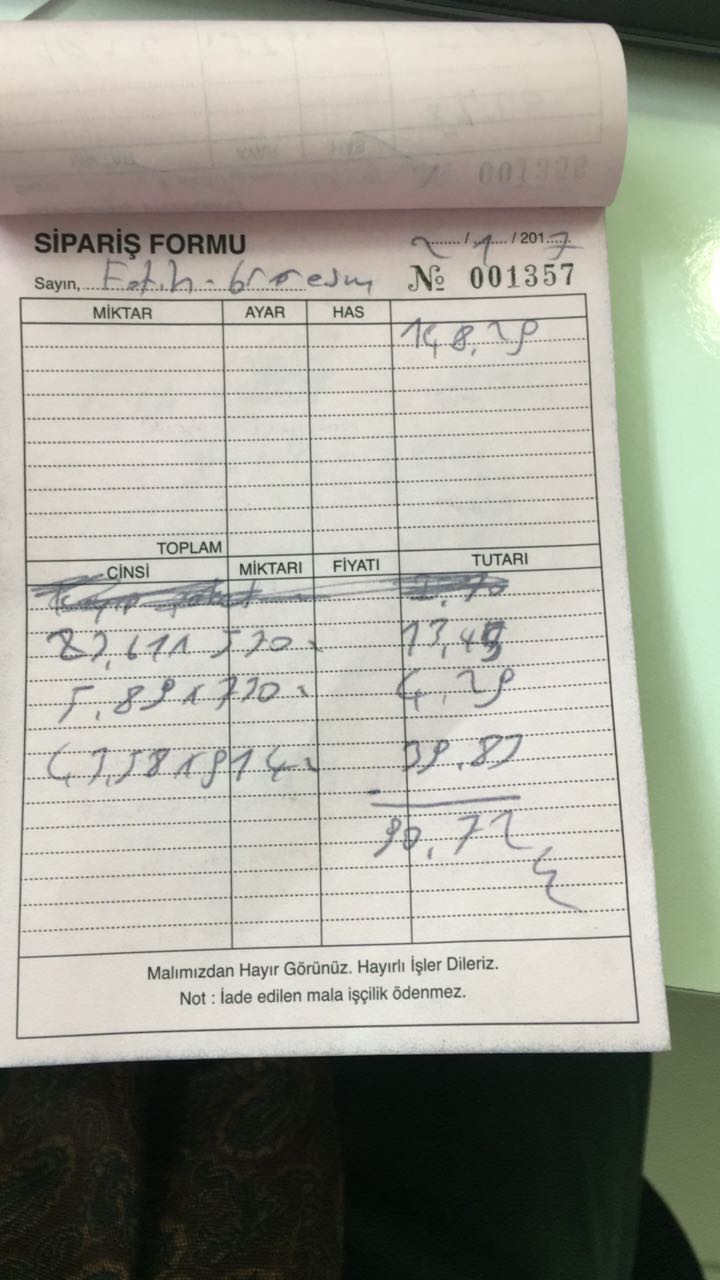 001326
SİPARİŞ FORMU 2 / 1 / 2017
Sayın, Fatih - № 001357
MİKTAR AYAR HAS
148,29
TOPLAM
CİNSİ MİKTARI FİYATI TUTARI
23,61 x 570 = 13,45
5,89 x 730 = 4,29
43,58 x 914 = 39,83
90,72
Malımızdan Hayır Görünüz. Hayırlı İşler Dileriz.
Not : İade edilen mala işçilik ödenmez.